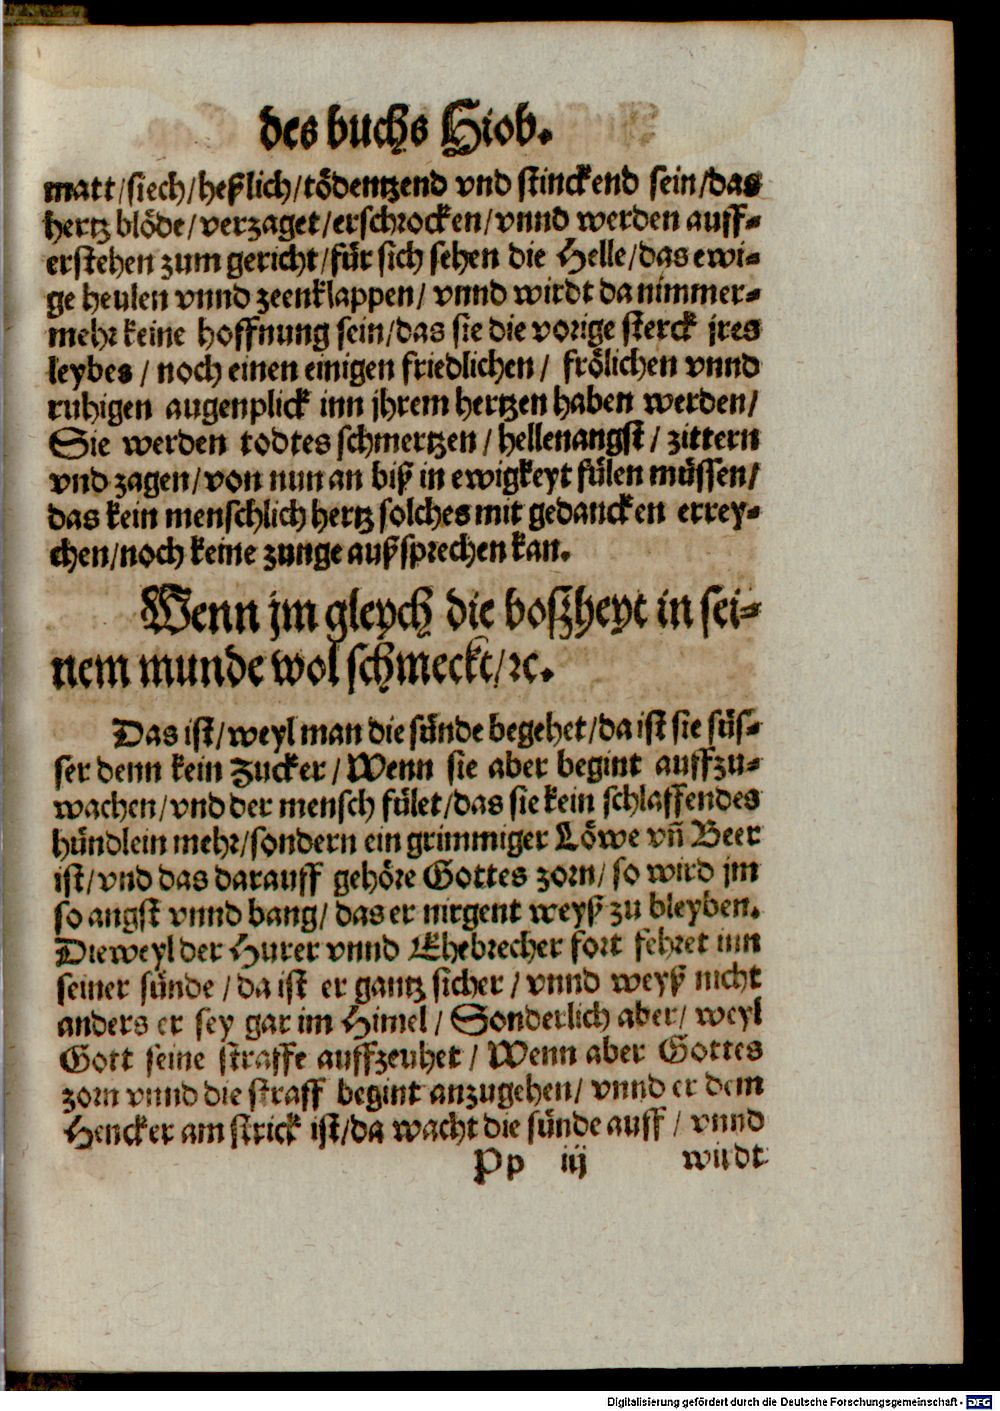 des buchs Hiob.
matt/siech/heßlich/tödentzend vnd stinckend sein/das
hertz blöde/verzaget/erschrocken/vnnd werden auff-
erstehen zum gericht/für sich sehen die Helle/das ewi-
ge heulen vnnd zeenklappen/ vnnd wirdt da nimmer-
mehr keine hoffnung sein/das sie die vorige sterck jres
leybes / noch einen einigen friedlichen / frölichen vnnd
ruhigen augenplick inn jhrem hertzen haben werden/
Sie werden todtes schmertzen / hellenangst / zittern
vnd zagen/von nun an biß in ewigkeyt fülen müssen/
das kein menschlich hertz solches mit gedancken errey-
chen/noch keine zunge außsprechen kan.
Wenn jm gleych die boßheyt in sei-
nem munde wol schmeckt/ꝛc.
Das ist/weyl man die sünde begehet/da ist sie süs-
ser denn kein Zucker / Wenn sie aber begint auffzu-
wachen/vnd der mensch fület/das sie kein schlaffendes
hündlein mehr/sondern ein grimmiger Löwe vñ Beer
ist/vnd das darauff gehöre Gottes zorn/ so wird jm
so angst vnnd bang/ das er nirgent weyß zu bleyben.
Dieweyl der Hurer vnnd Ehebrecher fort fehret inn
seiner sünde / da ist er gantz sicher / vnnd weyß nicht
anders er sey gar im Himel / Sonderlich aber/ weyl
Gott seine straffe auffzeuhet / Wenn aber Gottes
zorn vnnd die straff begint anzugehen/ vnnd er dem
Hencker am strick ist/da wacht die sünde auff / vnnd
Pp iij wirdt
Digitalisierung gefördert durch die Deutsche Forschungsgemeinschaft - DFG